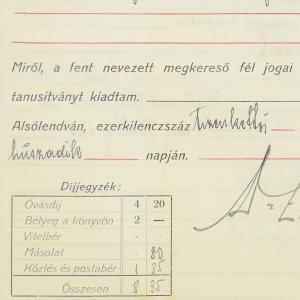 Miről, a fent nevezett megkereső fél jogai
tanusitványt kiadtam.
Alsólendván, ezerkilenczszáz
huszadik napján.
Dijjegyzék:
Óvásdíj 4 20
Bélyeg a könyvön 2 —
Vitelbér
Másolat 80
Közlés és postabér 1 35
Összesen 8 35